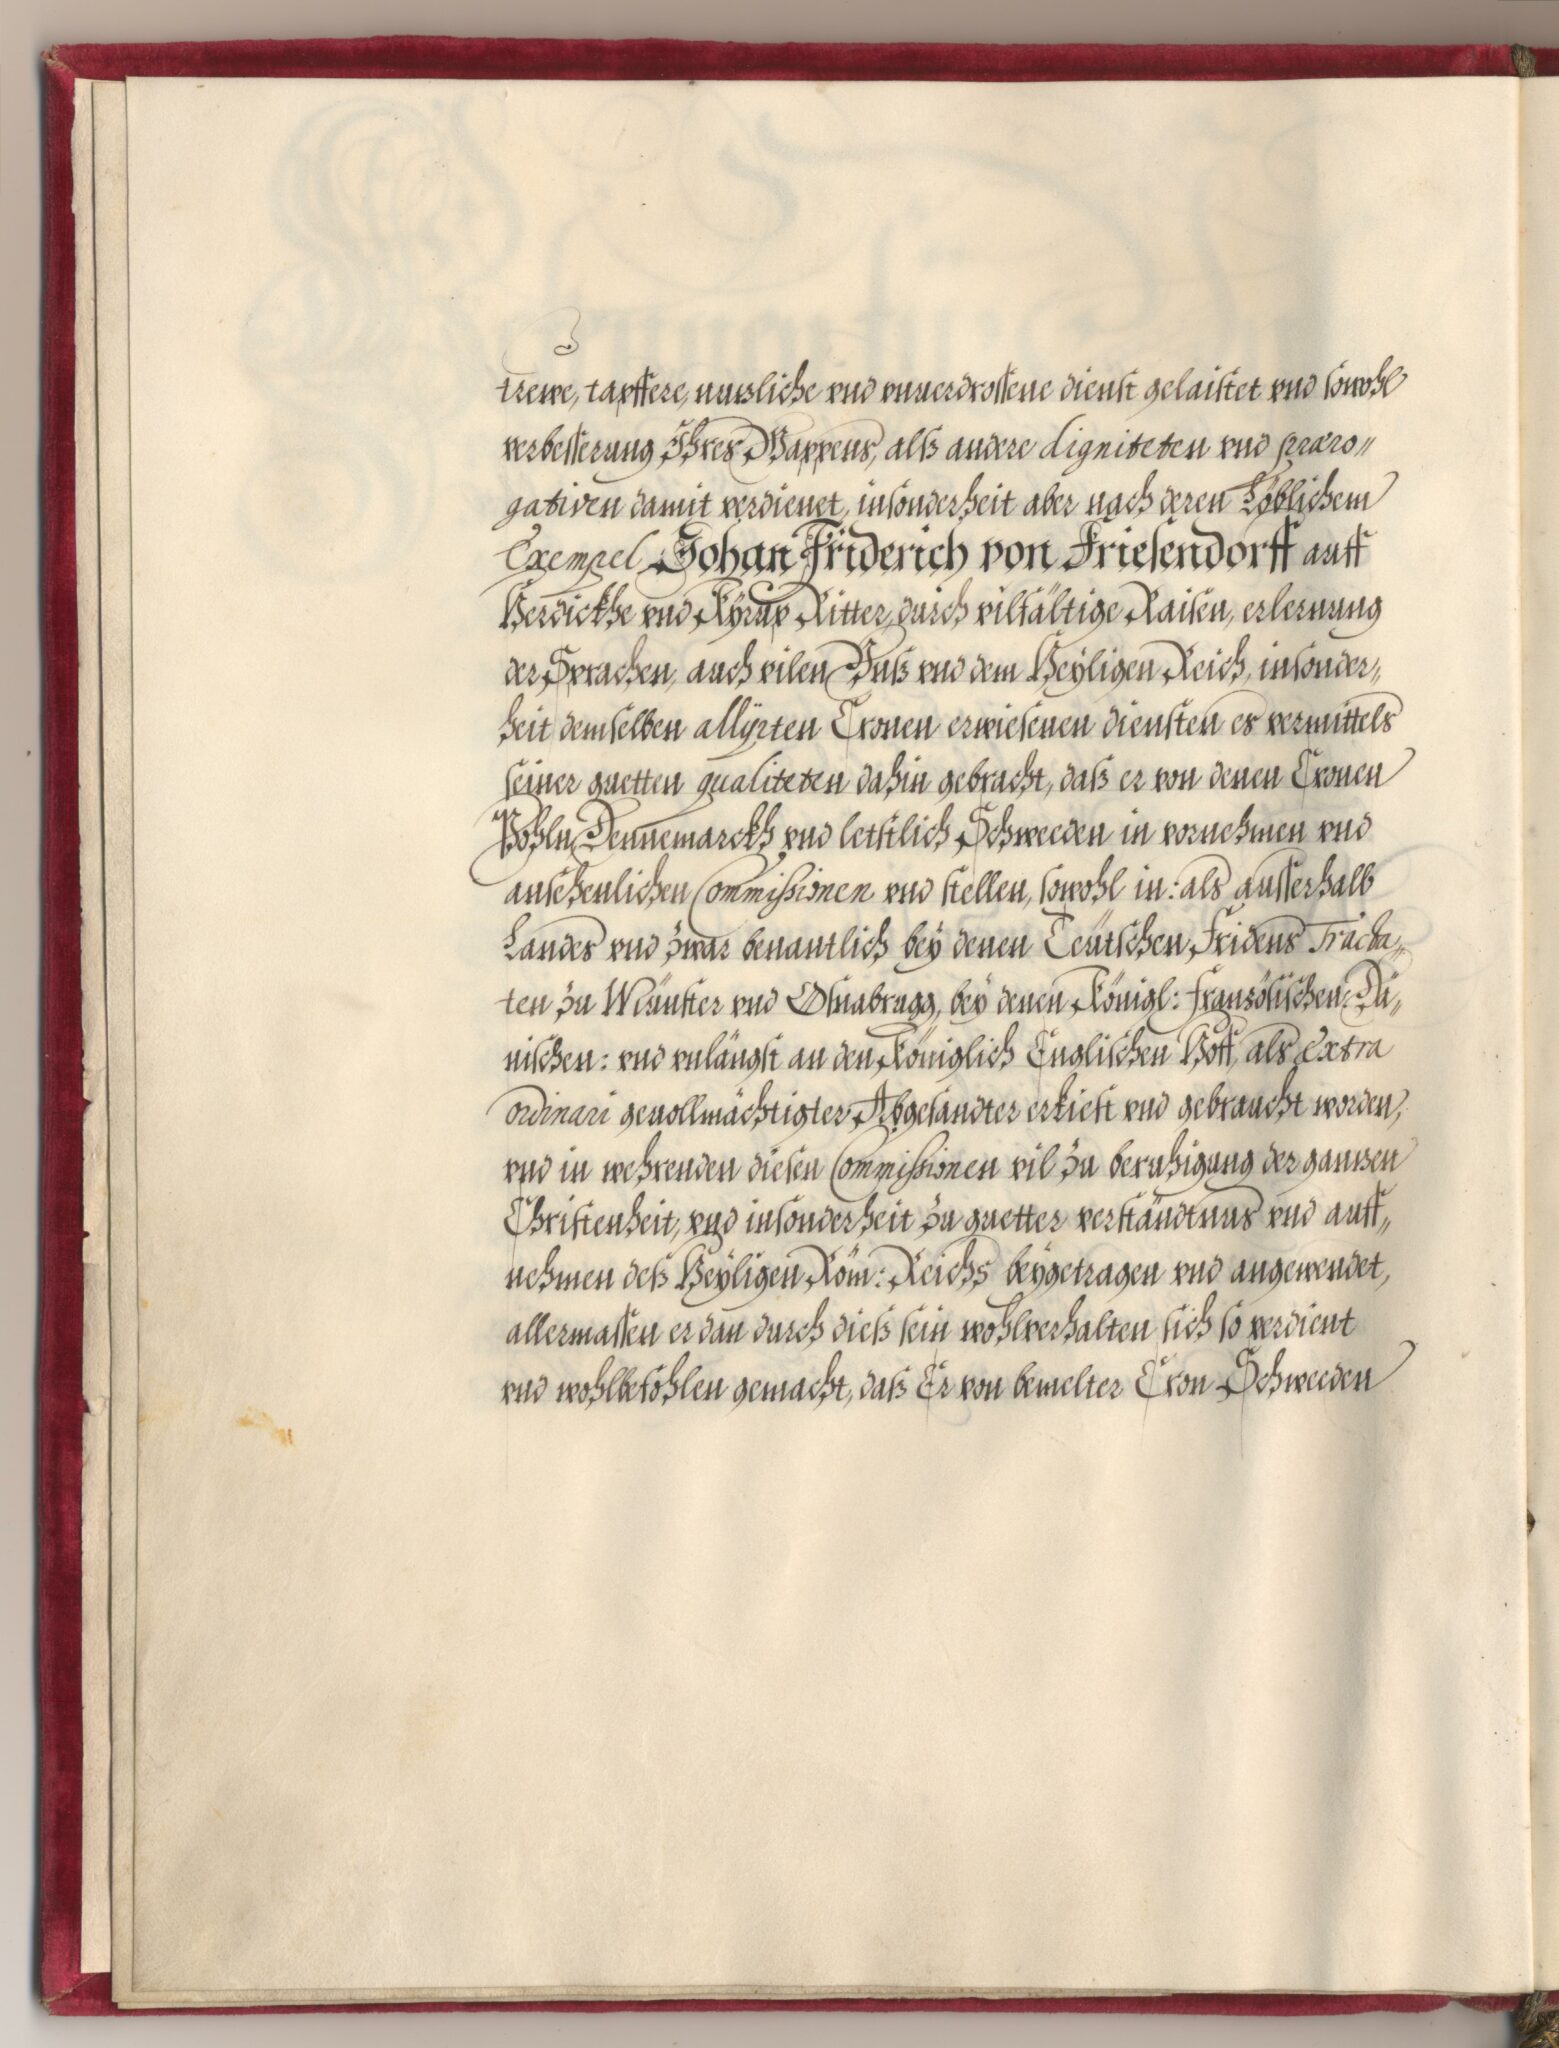 trewe, tapffere, nutzliche vnd vnuerdrossene dienst gelaistet vnd sowohl
verbesserung Ihres Wappens, alß andere digniteten vnd præro„
gativen damit verdienet, insonderheit aber nach deren Löblichem
Exempel Johan Friderich von Friesendorff auff
Herdickhe vnd Kÿrup Ritter, durch vilfältige Raisen, erlernung
der Sprachen, auch vilen Vnß vnd dem Heÿligen Reich, insonder„
heit demselben allÿrten Cronen erwiesenen diensten es vermittels
seiner guetten qualiteten dahin gebracht, daß er von denen Cronen
Pohln, Dennemarckh, vnd letstlich Schweeden in vornehmen vnd
ansehenlichen Commissionen vnd stellen, sowohl in: als ausserhalb
Landes vnd zwar benantlich beÿ denen Teütschen Fridens Tracta„
ten zu Münster vnd Oßnabrugg, beÿ denen Königl: Französischen: Dä„
nischen: vnd vnlängst an den Königlich Englischen Hoff, als Extra
ordinari geuollmächtigter Abgesandter erkiest vnd gebraucht worden,
vnd in wehrenden diesen Commissionen vil zu beruhigung der gantzen
Christenheit, vnd insonderheit zu guetter verständtnus vnd auff„
nehmen deß Heÿligen Röm: Reichs beÿgetragen vnd angewendet,
allermassen er dan durch dieß sein wohlverhalten sich so verdient
vnd wohlbefohlen gemacht, daß Er von bemelter Cron Schweeden